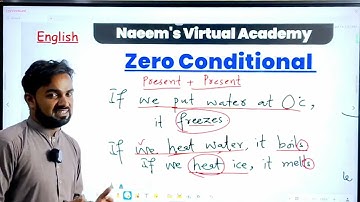 English
Naeem's Virtual Academy
Zero Conditional
Present + Present
If we put water at 0°c,
it freezes
If we heat water, it boils
If we heat ice, it melts